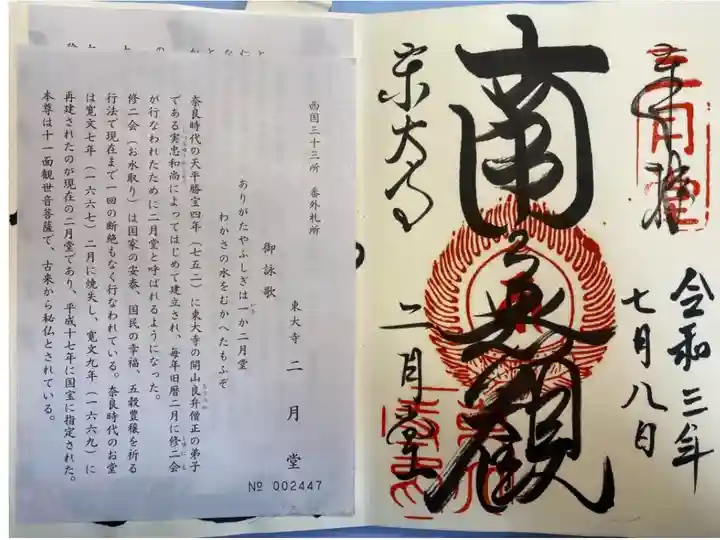 奉拝
令和三年
七月八日
南無観
東大寺
二月堂
西国三十三所 番外札所
東大寺 二月堂
御詠歌
ありがたやふしぎは一か二月堂
わかさの水をむかへたもふぞ
奈良時代の天平勝宝四年(七五二)に東大寺の開山良弁僧正の弟子
である実忠和尚によってはじめて建立され、毎年旧暦二月に修二会
が行なわれたために二月堂と呼ばれるようになった。
修二会(お水取り)は国家の安泰、国民の幸福、五穀豊穣を祈る
行法で現在まで一回の断絶もなく行なわれている。奈良時代のお堂
は寛文七年(一六六七)二月に焼失し、寛文九年(一六六九)に
再建されたのが現在の二月堂であり、平成十七年に国宝に指定された。
本尊は十一面観世音菩薩で、古来から秘仏とされている。
№ 002447